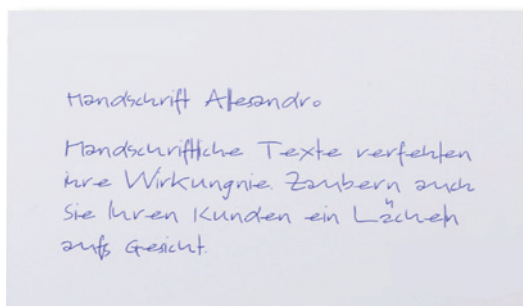 Handschrift Alesandro
Handschriftliche Texte verfehlen
ihre Wirkung nie. Zaubern auch
Sie Ihren Kunden ein Lächeln
aufs Gesicht.